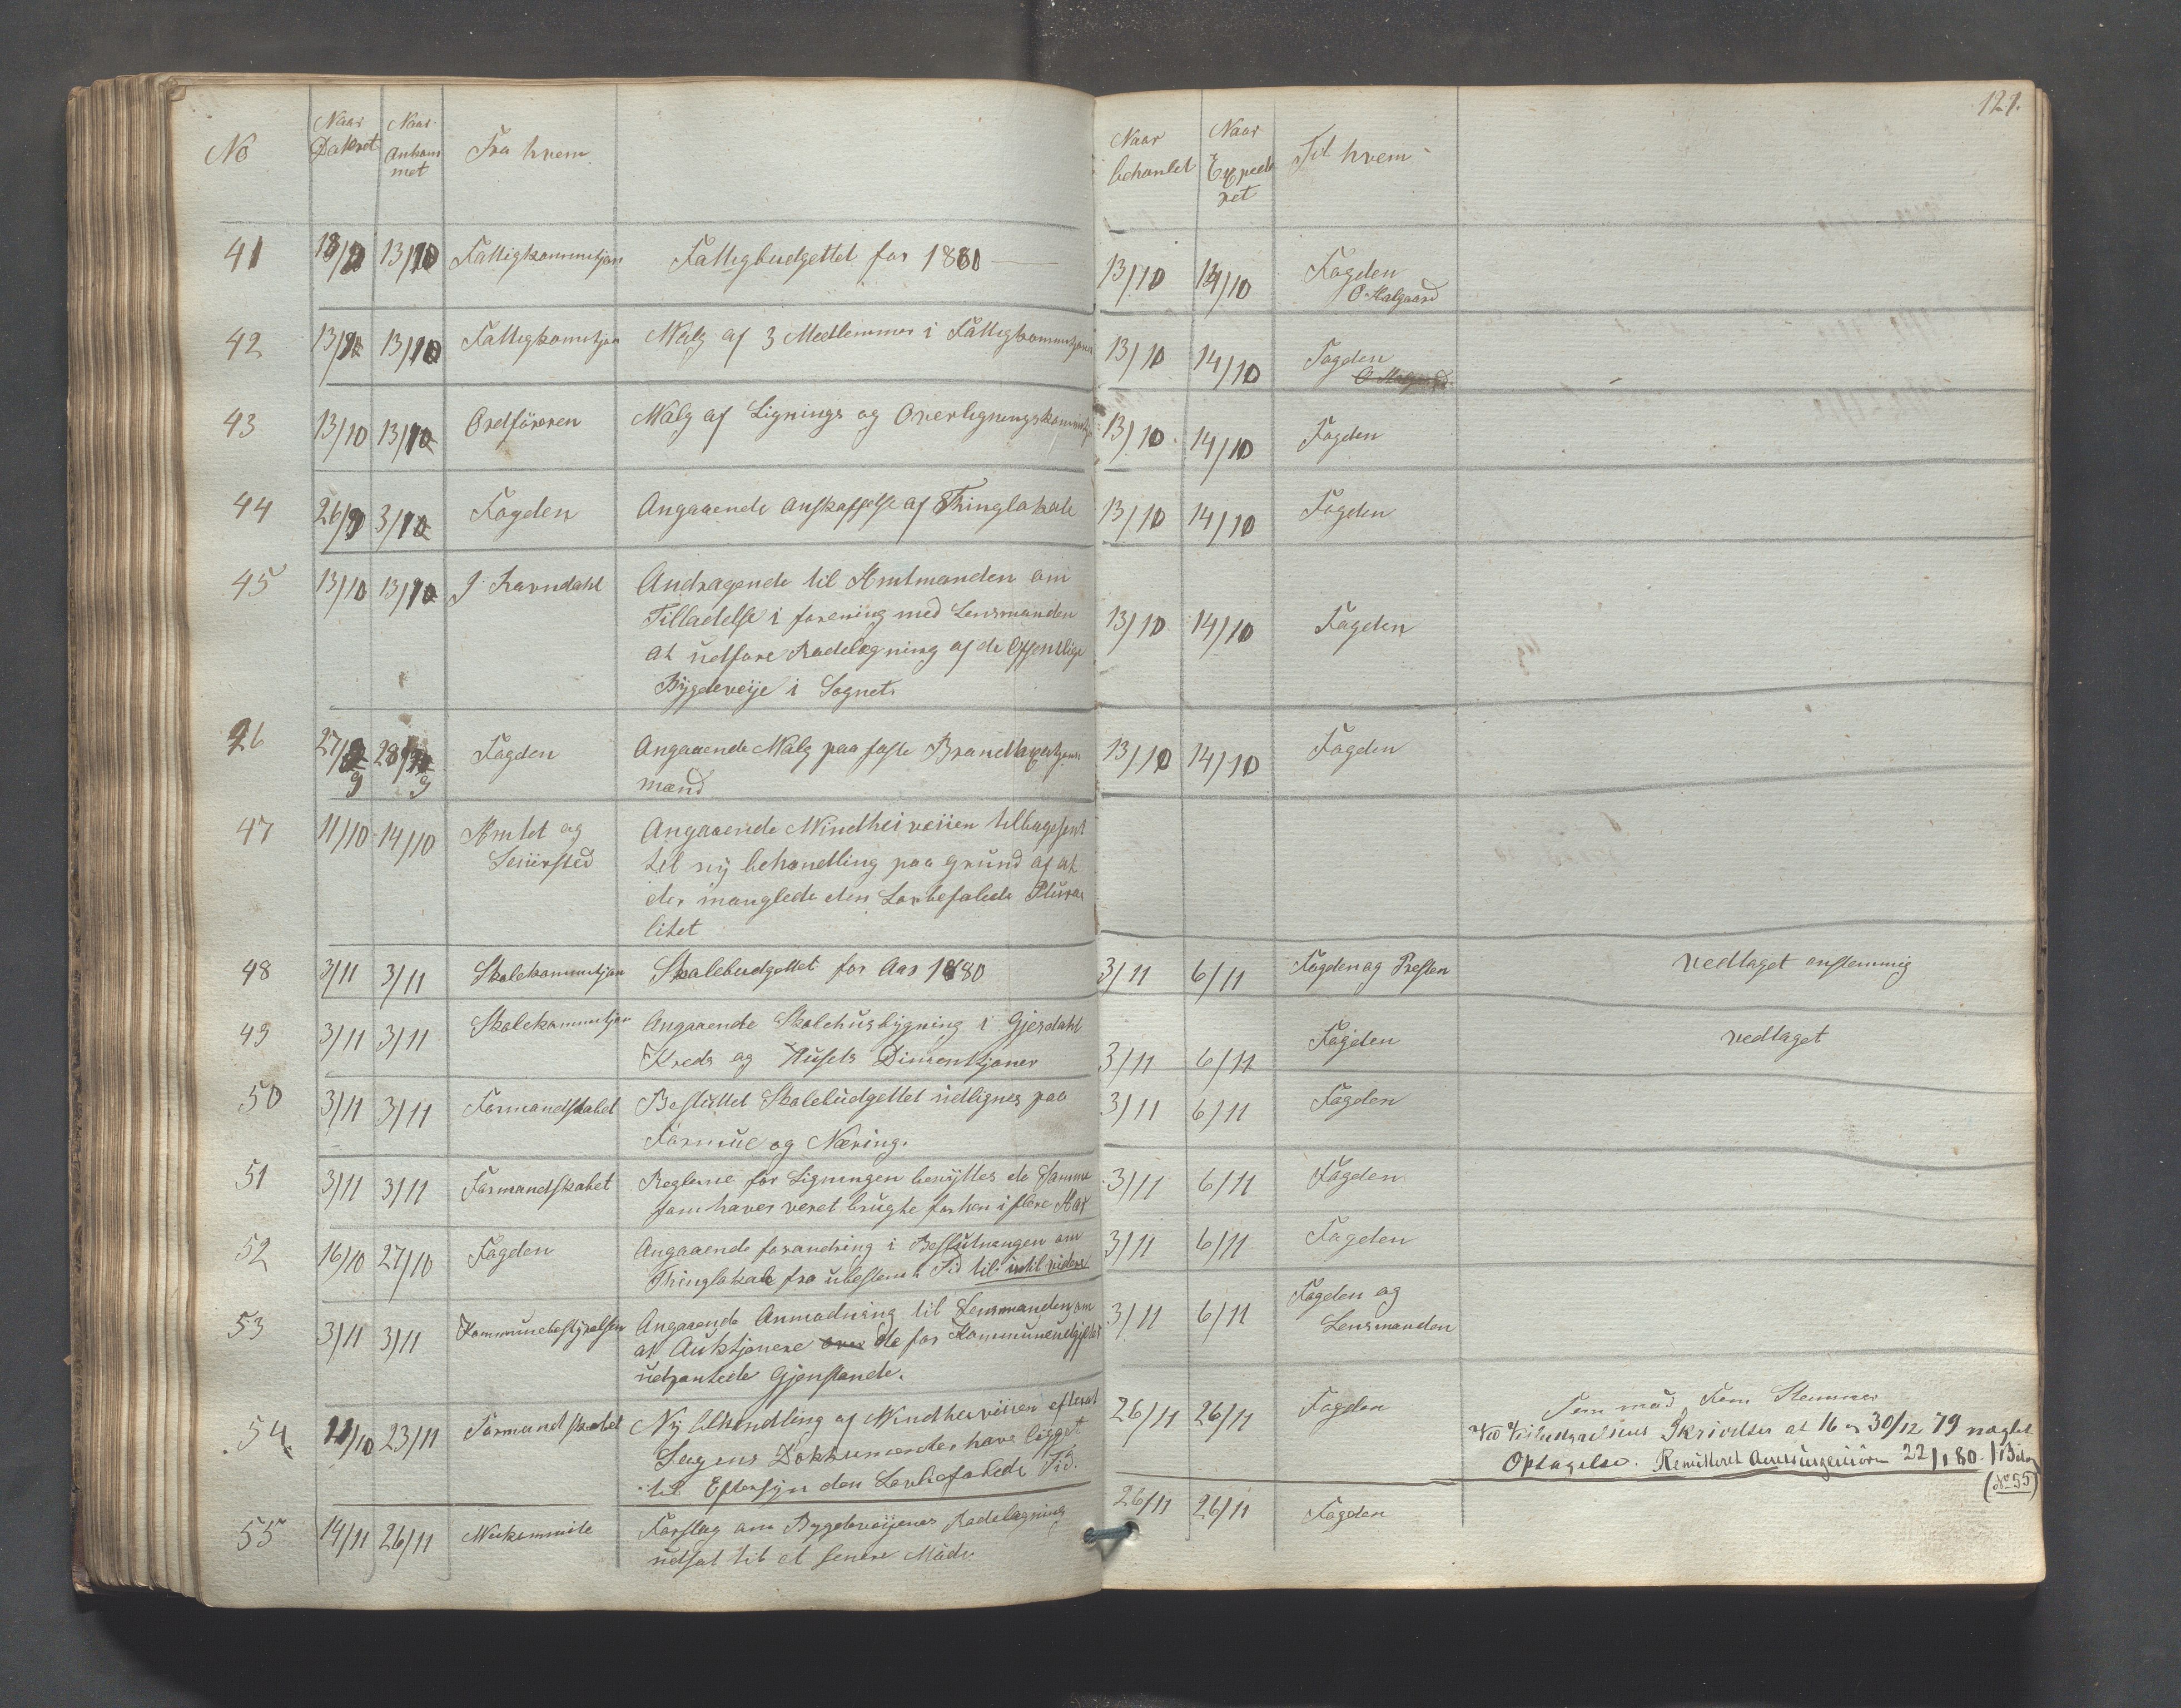 No Naar Dateret Naar Ankommet Fra hvem
41 13/10 13/10 Fattigkommitjon Fattigbudgettet for 1880
42 13/10 13/10 Fattigkomitjon Walg af 3 Medlemmer i Fattigkommitjonen
43 13/10 13/10 Ordföreren Walg af Lignings og Overligningskommitj
44 26/9 3/10 Fogden Angaaende anskaffelse af Thinglokale
45 13/10 13/10 J. Ravndahl Andragende til Amtmanden om
Tilladelse i forening med Lensmanden
at udføre Rodelægning af de Offentlige
Bygdeveije i Sognet.
26 27/9 28/9 Fogden Angaaende Walg paa faste Brandtaxtjons
mænd
47 11/10 14/10 Amtet og Angaaende Windheiveiien tilbagesent
Seiersted til ny behandling paa grund af at
der manglede den Lovbefalede Plura
litet
48 3/11 3/11 Skolekommitjon Skolebudgettet for Aar 1880
49 3/11 3/11 Skolekommitjon Angaaende Skolehusbygning i Gjesdahl
Kreds og Husets Dimentjoner
50 3/11 3/11 Formandskabet Besluttet Skolebudgettet udlignes paa
Formue og Næring.
51 3/11 3/11 Formandskabet Reglerne for Ligningen benyttes de Samme
som haver veret brugte forhen i flere Aar
52 16/10 27/10 Fogden Angaaende forandring i Beslutningen om
Thinglokale fra ubestemt Tid til indtil videre
53 3/11 3/11 Kommunebestyrelsen Angaaende Anmodning til Lensmanden om
at Auktjonere over de for Kommuneudgifter
udpantede Gjenstande.
54 11/10 23/11 Formandskabet Ny behandling af Windheiveiien efterat
Sagens Dokkumenter have ligget
til Eftersyn den Lovbefalede Tid.
55 14/11 26/11 Weikommite Forslag om Bygdeveijenes Rodelægning
udsat til et senere Möde.
121.
Naar behanlet Naar Expederet Til hvem
13/10 14/10 Fogden
O. Malgaard
13/10 14/10 Fogden
O. Malgaard
13/10 14/10 Fogden
13/10 14/10 Fogden
13/10 14/10 Fogden
13/10 14/10 Fogden
3/11 6/11 Fogden og Presten vedtaget enstemmig
3/11 6/11 Fogden vedtaget
3/11 6/11 Fogden
3/11 6/11 Fogden
3/11 6/11 Fogden
3/11 6/11 Fogden og
Lensmanden
26/11 26/11 Fogden Fem mod Fem Stemmer
Ved Skrivelser at 16 og 30/12 79 nægtet
Optagelse. Remitteret 22/1 80.
(No 55)
26/11 26/11 Fogden